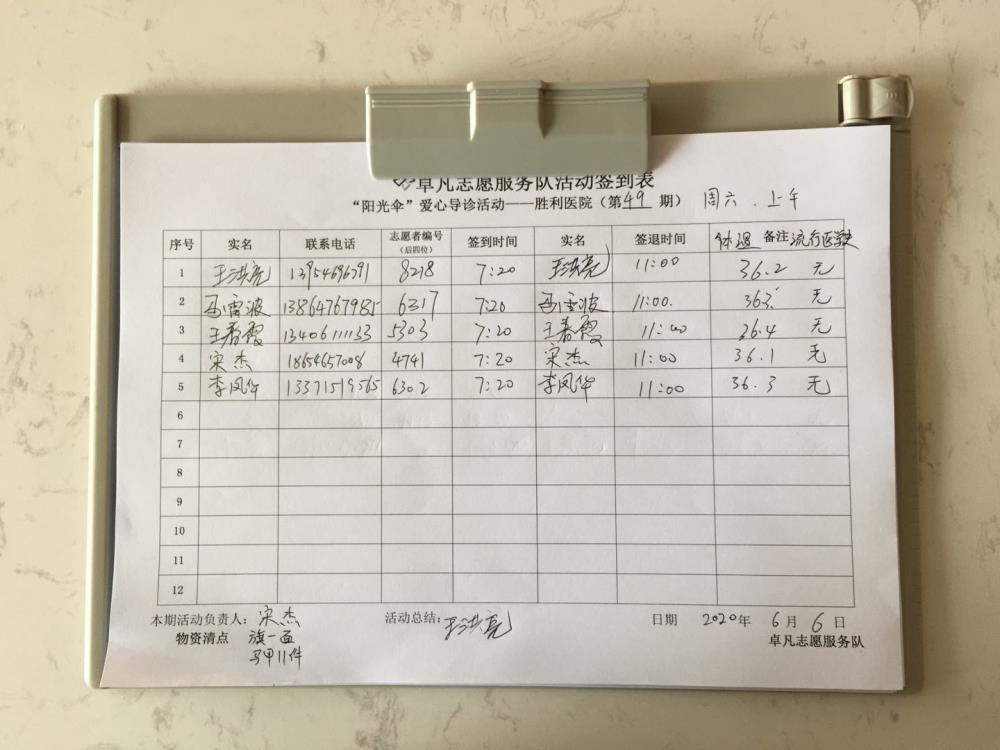 卓凡志愿服务队活动签到表
“阳光伞”爱心导诊活动——胜利医院（第49期） 周六.上午
序号 实名 联系电话 志愿者编号（后四位） 签到时间 实名 签退时间 体温 备注 流行医史
1 王洪亮 13954696791 8278 7:20 王洪亮 11:00 36.2 无
2 马雪波 13864767985 6317 7:20 马雪波 11:00. 无
3 王春霞 13406111133 5303 7:20 王春霞 11:00 36.4 无
4 宋杰 18654657008 4741 7:20 宋杰 11:00 36.1 无
5 李凤华 13371519565 6302 7:20 李凤华 11:00 36.3 无
6
7
8
9
10
11
12
本期活动负责人：宋杰 活动总结：王洪亮 日期 2020年 6月 6日
物资清点 旗一面 卓凡志愿服务队
马甲11件